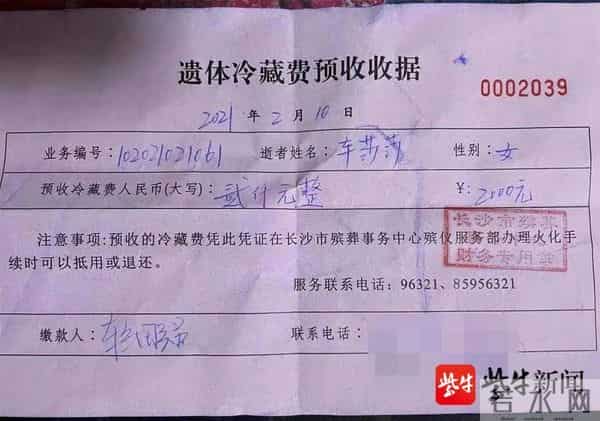 遗体冷藏费预收收据
0002039
2021 年 2 月 10 日
业务编号: 102021021061 逝者姓名: 车莎莎 性别: 女
预收冷藏费人民币(大写): 贰仟元整 ¥: 2000元
注意事项:预收的冷藏费凭此凭证在长沙市殡葬事务中心殡仪服务部办理火化手
续时可以抵用或退还。
长沙市殡葬
财务专用章
服务联系电话: 96321、85956321
缴款人: 联系电话:
紫牛 紫牛新闻
若水网